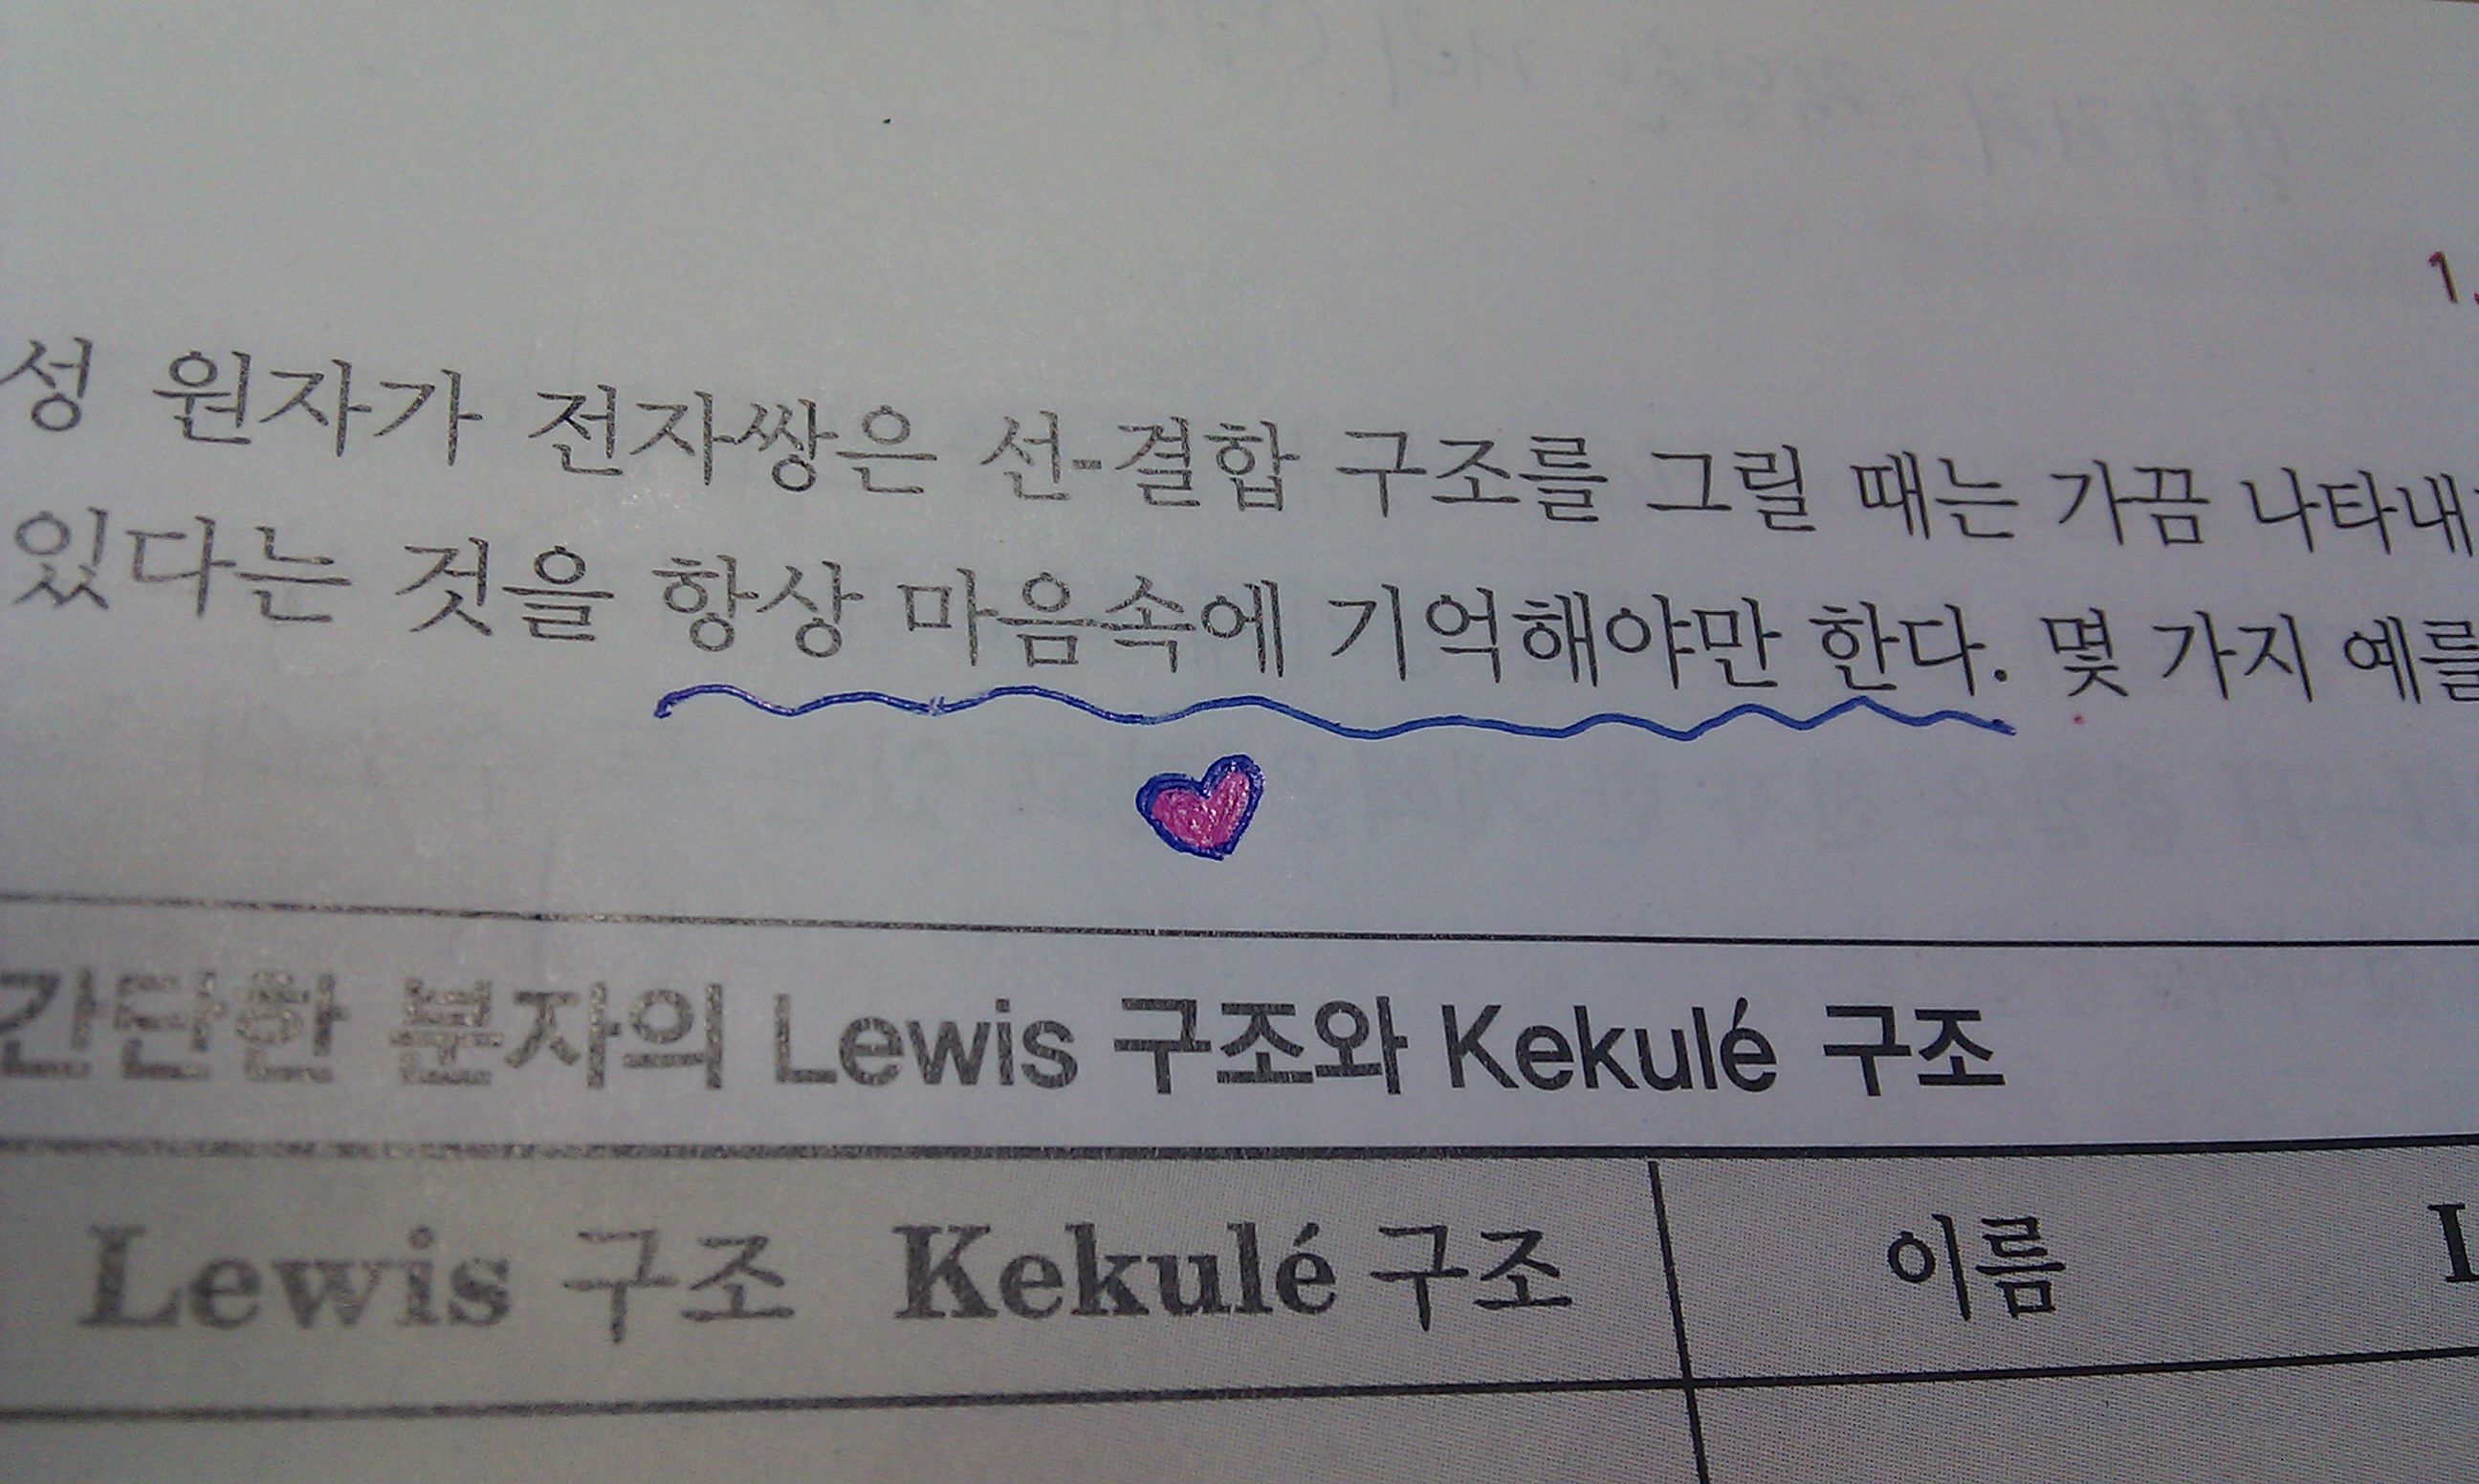 1.
성 원자가 전자쌍은 선-결합 구조를 그릴 때는 가끔 나타내
있다는 것을 항상 마음속에 기억해야만 한다. 몇 가지 예를
간단한 분자의 Lewis 구조와 Kekulé 구조
Lewis 구조 Kekulé 구조 이름